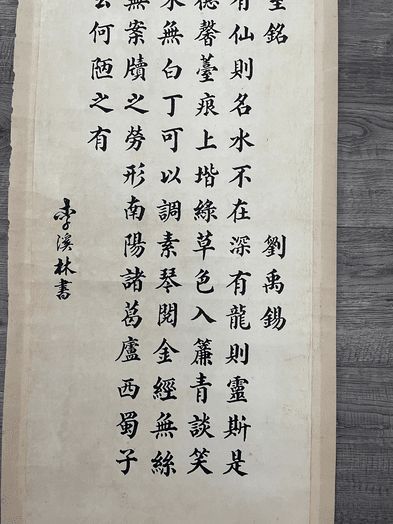 室銘 劉禹錫
有仙則名水不在深有龍則靈斯是
德馨薹痕上堦綠草色入簾青談笑
來無白丁可以調素琴閱金經無絲
無案牘之勞形南陽諸葛廬西蜀子
云何陋之有
李溪林書